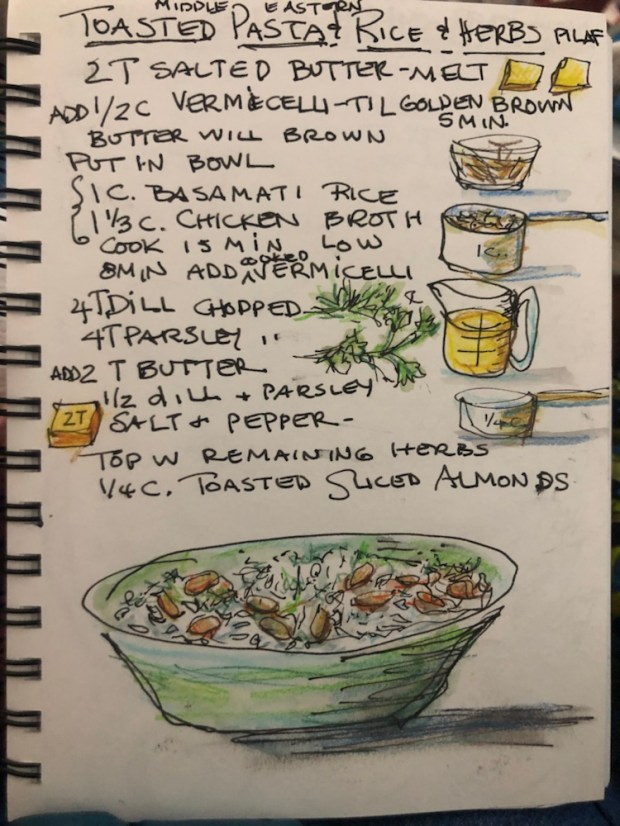 MIDDLE EASTERN
TOASTED PASTA & RICE & HERBS PILAF
2T SALTED BUTTER - MELT
ADD 1/2 C VERMICELLI - TIL GOLDEN BROWN
5 MIN.
BUTTER WILL BROWN
PUT IN BOWL
1 C. BASAMATI RICE
1 1/3 C. CHICKEN BROTH
COOK 15 MIN LOW
8 MIN ADD COOKED VERMICELLI
4T DILL CHOPPED
4T PARSLEY "
ADD 2 T BUTTER
1/2 dill + PARSLEY
SALT + PEPPER -
TOP W REMAINING HERBS
1/4 C. TOASTED SLICED ALMONDS
1 C.
2T
1/4 C